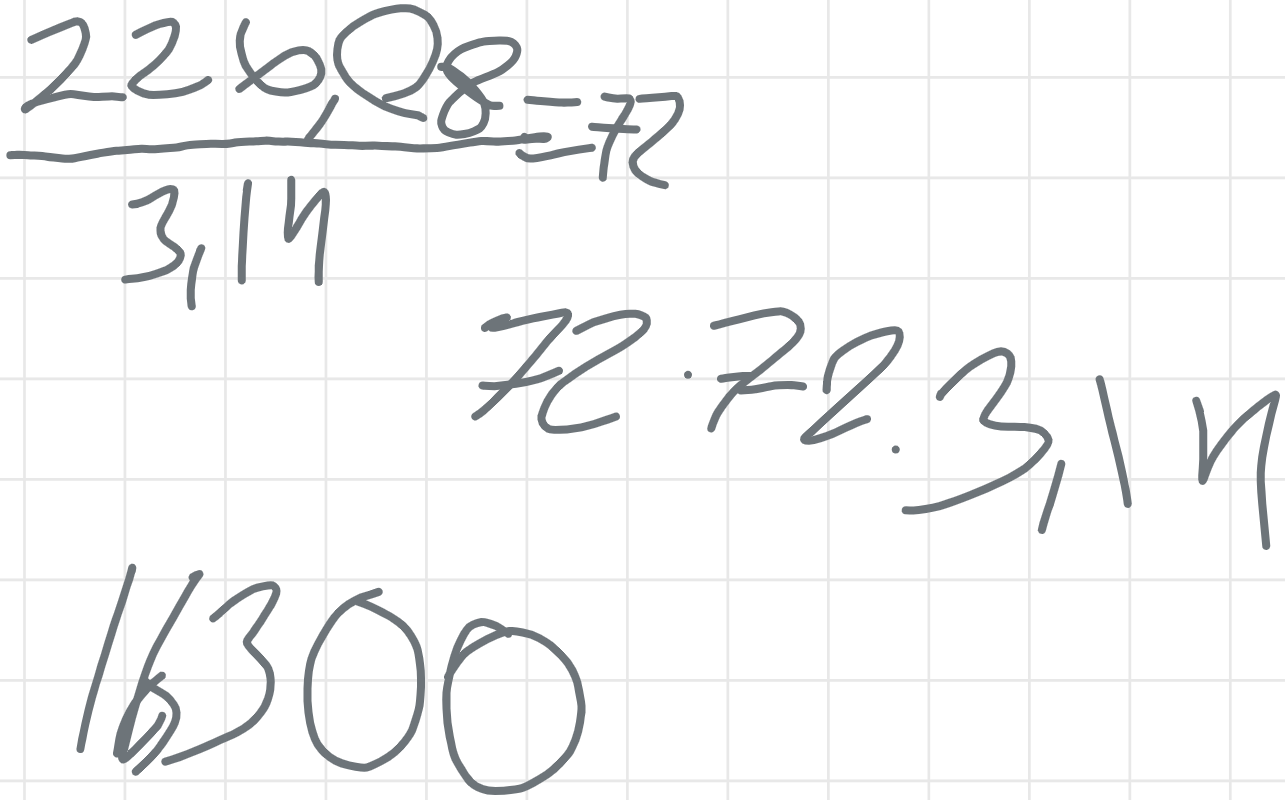 226,08
3,14
=72
72·72·3,14
16300